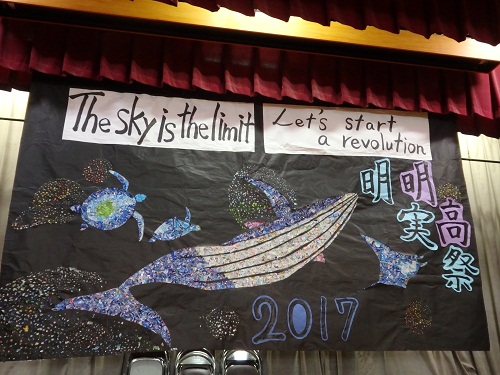 The sky is the limit
Let's start
a revolution
明高祭
明実
2017